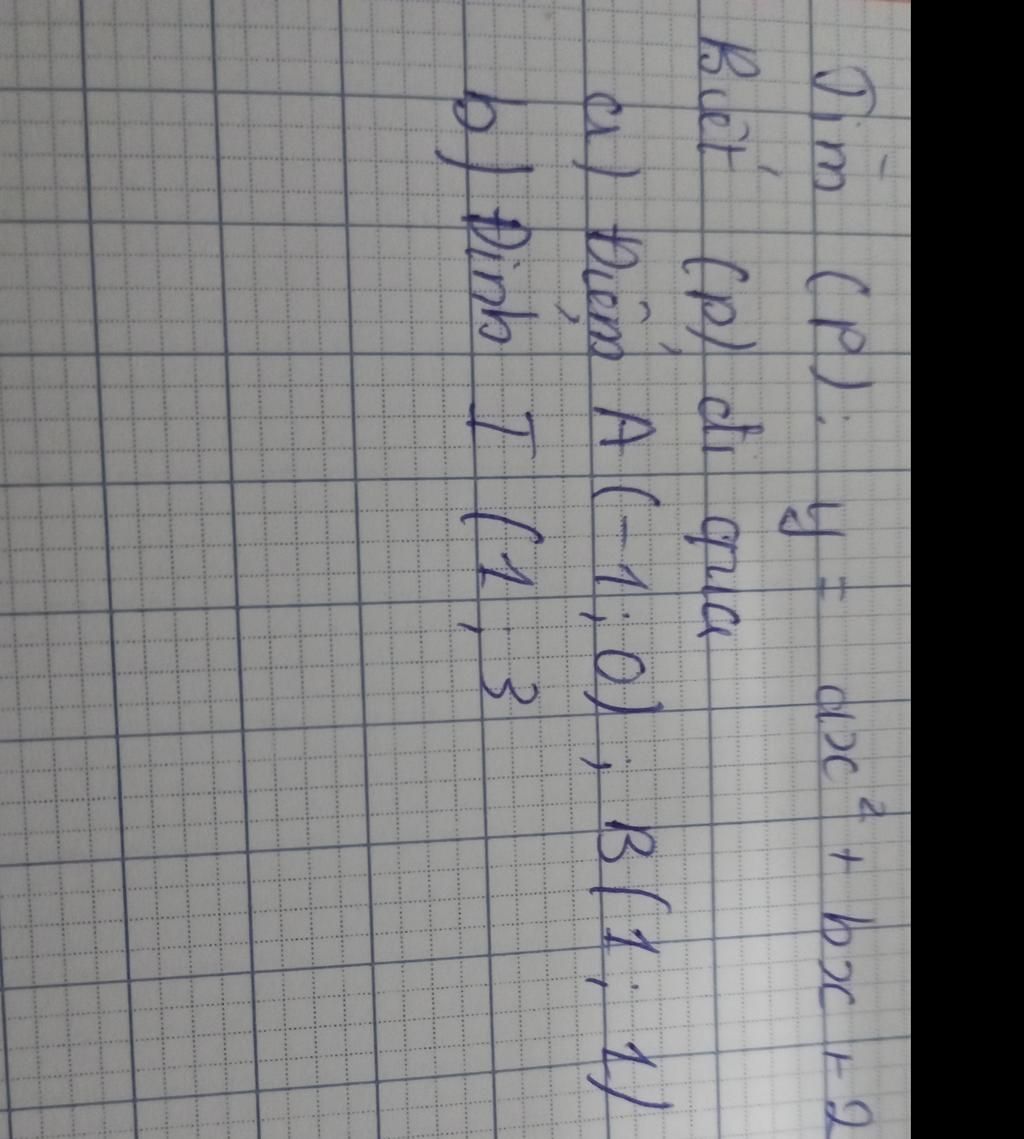 Tìm (P): y = ax² + bx + 2
Biết (P) đi qua
a) Điểm A (-1; 0); B(1; 1)
b) Đỉnh I (1; 3